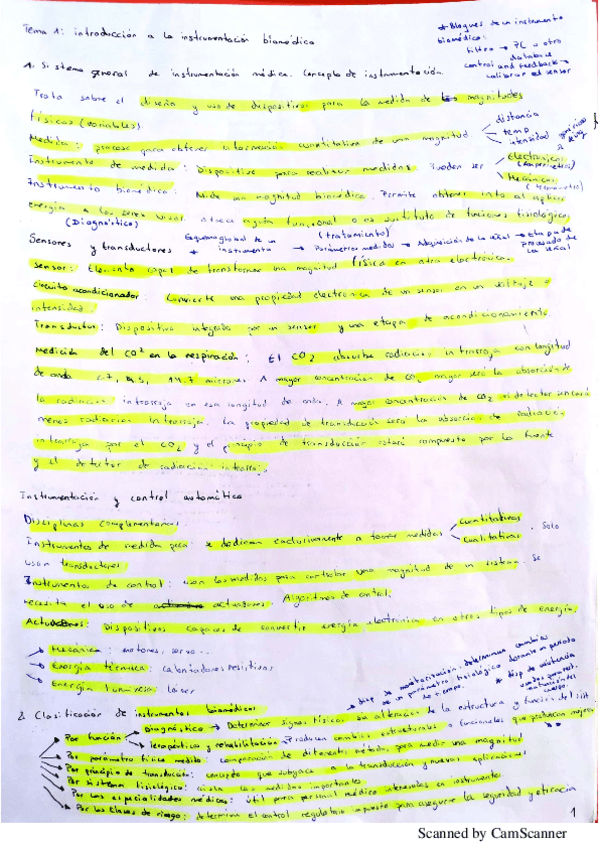 Tema 1: introducción a la instrumentación biomédica
* Bloques de un instrumento
biomédico:
filtro → PC u otro
database
control and feedback →
calibrar el sensor
1. Sistema general de instrumentación médica. Concepto de instrumentación.
Trata sobre el diseño y uso de dispositivos para la medida de magnitudes
físicas (variables)
distancia
temp
intensidad
Medida: proceso para obtener información cuantitativa de una magnitud
Instrumento de medida: Dispositivo para realizar medidas. Pueden ser
Electrónicos
(Amperímetro)
Mecánicos
(Termómetro)
Instrumento biomédico: Mide una magnitud biomédica. Permite obtener info al aplicar
energía a los seres vivos, ofrece ayuda funcional o es sustituto de funciones fisiológicas
(Diagnóstico)
(tratamiento)
Sensores y transductores
Esquema global de un
instrumento → Parámetros medidos → Adquisición de la señal → Etapa de
procesado de
la señal
Sensor: Elemento capaz de transformar una magnitud física en otra electrónica.
Circuito acondicionador: Convierte una propiedad electrónica de un sensor en un voltaje o
intensidad.
Transductor: Dispositivo integrado por un sensor y una etapa de acondicionamiento
Medición del CO² en la respiración: El CO2 absorbe radiación infrarroja con longitud
de onda 2.7, 4.3, 14.7 micrones. A mayor concentración de CO2 mayor será la absorción de
la radiación infrarroja en esa longitud de onda. A mayor concentración de CO2 el detector sensará
menos radiación infrarroja. La propiedad de transducción será la absorción de radiación
infrarroja por el CO2 y el principio de transducción estará compuesto por la fuente
y el detector de radiación infrarroja.
Instrumentación y control automático
Disciplinas complementarias
Instrumentos de medida pura: se dedican exclusivamente a tomar medidas
Cuantitativas
Cualitativas
. Solo
usan transductores
Instrumentos de control: usan las medidas para controlar una magnitud de un sistema. Se
necesita el uso de actuadores. Algoritmos de control.
Actuadores: Dispositivos capaces de convertir energía electrónica en otros tipos de energía.
Mecánica: motores, servo...
Energía térmica: calentadores resistivos
Energía luminosa: láser
disp de monitorización: determinan cambios
de un parámetro fisiológico durante un periodo
de tiempo.
disp de asistencia
cuerpo.
2. Clasificación de instrumentos biomédicos
Por función
Diagnóstico → Determinar signos físicos, su alteración de la estructura y función del sist.
Terapéutica y rehabilitación. Producen cambios estructurales o funcionales que produzcan mejora
Por parámetro físico medido: comparación de diferentes métodos para medir una magnitud
Por principio de transducción: concepto que subyace a la transducción y nuevas aplicaciones
Por sistema fisiológico: aísla las medidas importantes
Por las especialidades médicas: útil para personal médico interesado en instrumento
Por las clases de riesgo: determina el control regulatorio impuesto para asegurar la seguridad y eficacia
1
Scanned by CamScanner